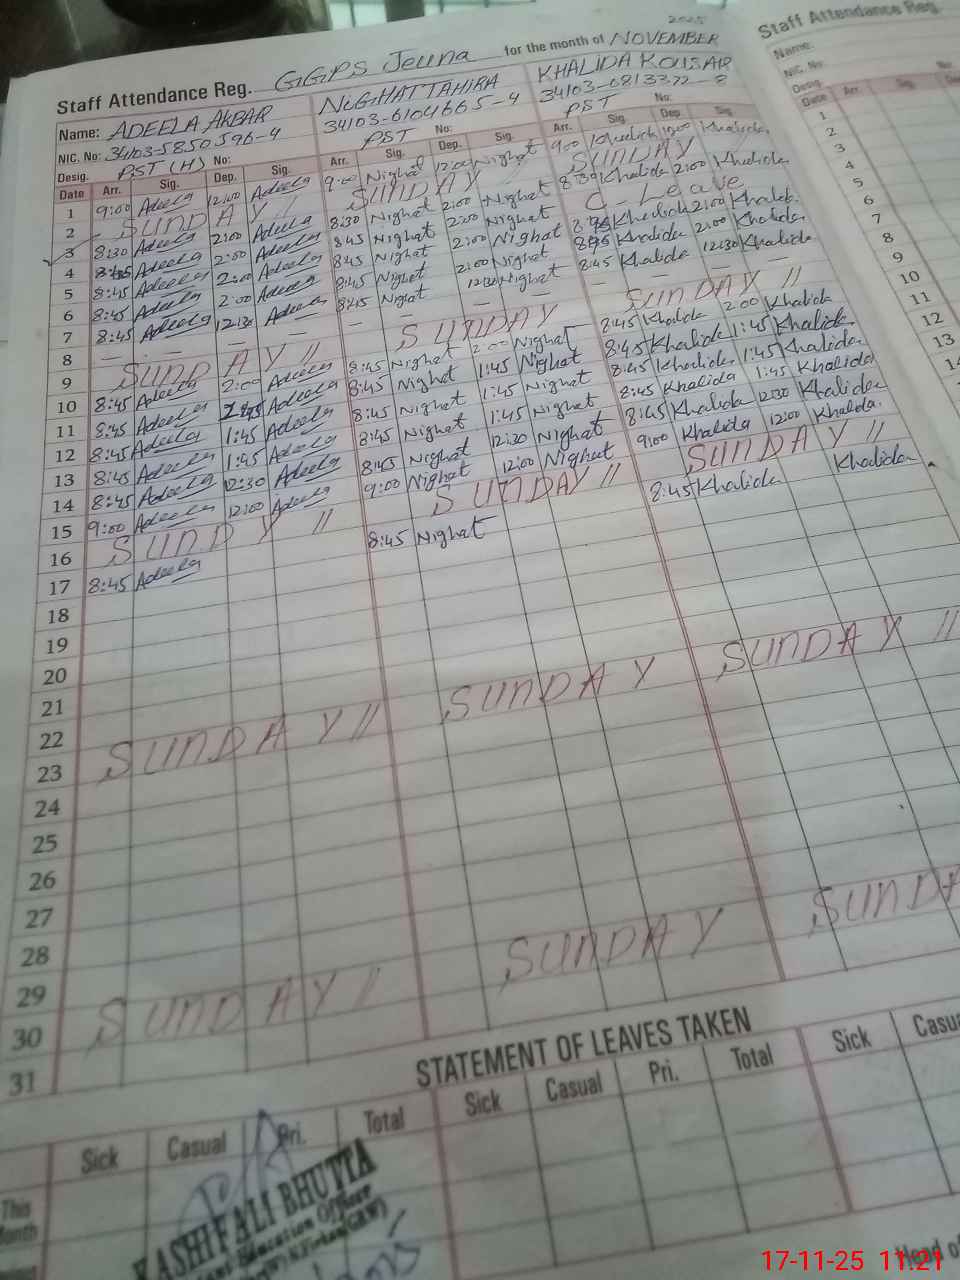 2025
Staff Attendance Reg. GGPS Jeuna for the month of NOVEMBER
Name: ADEELA AKBAR NIGHAT TAHIRA KHALIDA KOUSAR
NIC. No: 34103-5850596-4 34103-6104665-4
Desig. PST (H) No: PST No: PST No:
Date Arr. Sig. Dep. Sig. Arr. Sig. Dep. Sig. Arr. Sig. Dep. Sig.
1 9:00 Adeela 12:00 Adeela 9:00 Nighat 12:00 Nighat 9:00 Khalida 12:00 Khalida
2 SUNDAY // SUNDAY SUNDAY
3 8:30 Adeela 2:00 Adeela 8:30 Nighat 2:00 Nighat 8:30 Khalida 2:00 Khalida
4 8:45 Adeela 2:00 Adeela 8:45 Nighat 2:00 Nighat C - Leave
5 8:45 Adeela 2:00 Adeela 8:45 Nighat 2:00 Nighat Khalida 2:00 Khalida
6 8:45 Adeela 2:00 Adeela 8:45 Nighat 2:00 Nighat Khalida 2:00 Khalida
7 8:45 Adeela 12:30 Adeela 8:45 Nighat 12:30 Nighat 8:45 Khalida 12:30 Khalida
8 — — — — — — — — — — — —
9 SUNDAY // SUNDAY SUNDAY //
10 8:45 Adeela 2:00 Adeela 8:45 Nighat 2:00 Nighat 8:45 Khalida 2:00 Khalida
11 8:45 Adeela Adeela 8:45 Nighat 1:45 Nighat 8:45 Khalida 1:45 Khalida
12 8:45 Adeela 1:45 Adeela 8:45 Nighat 1:45 Nighat 8:45 Khalida 1:45 Khalida
13 8:45 Adeela 1:45 Adeela 8:45 Nighat 1:45 Nighat 8:45 Khalida 1:45 Khalida
14 8:45 Adeela 12:30 Adeela 8:45 Nighat 12:30 Nighat 8:45 Khalida 12:30 Khalida
15 9:00 Adeela 12:00 Adeela 9:00 Nighat 12:00 Nighat 9:00 Khalida 12:00 Khalida
16 SUNDAY // SUNDAY // SUNDAY //
17 8:45 Adeela 8:45 Nighat 8:45 Khalida Khalida
18
19
20
21
22
23 SUNDAY // SUNDAY SUNDAY //
24
25
26
27
28
29
30 SUNDAY // SUNDAY SUNDA
31
STATEMENT OF LEAVES TAKEN
Sick Casual Pri. Total Sick Casual Pri. Total Sick Casua
This
Month
KASHIF ALI BHUTTA
Education Officer
Head of
Staff Attendance Reg.
Name:
NIC. No
Desig. No:
Date Arr. Sig.
1
2
3
4
5
6
7
8
9
10
11
12
13
17-11-25 11:21